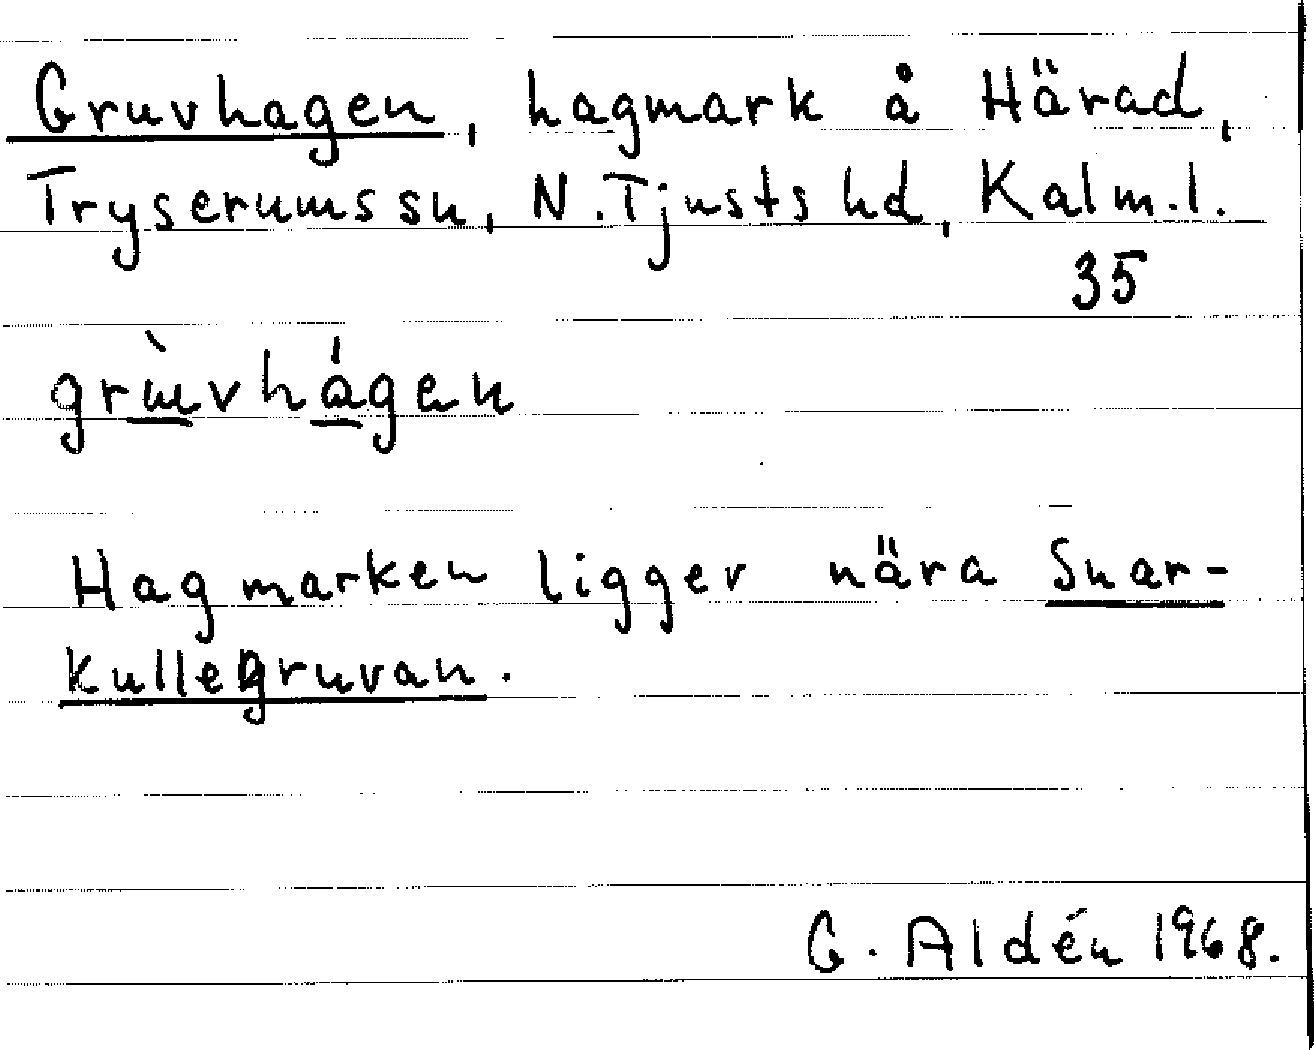 Gruvhagen, hagmark å Härad,
Tryserums sn, N. Tjusts hd, Kalm. l.
35
grɯ̀vhágen
Hagmarken ligger nära Snar-
kullegruvan.
G. Aldén 1968.